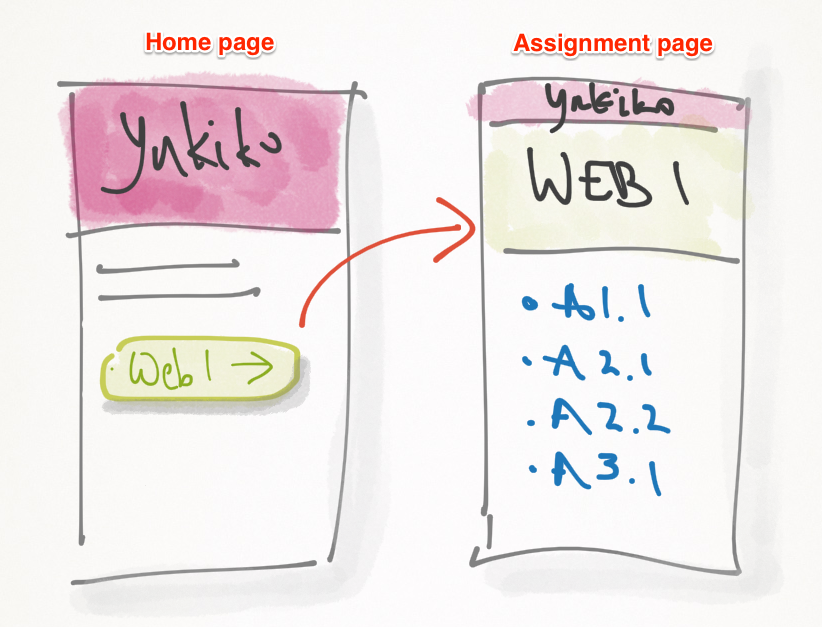 Home page
Yukiko
Web 1 →
Assignment page
Yukiko
WEB 1
• A1.1
• A2.1
• A2.2
• A3.1